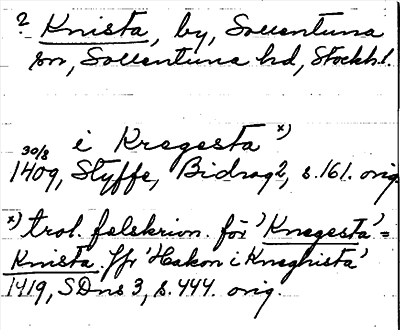 ? Knista, by, Sollentuna
sn, Sollentuna hd, Stockh.l.
i Kregesta x)
30/8
1409, Styffe, Bidrag 2, s. 161. orig.
x) trol. felskrivn. för 'Knegesta' =
Knista. Jfr 'Hakon i Kneghista'
1419, SDns 3, s. 444. orig.